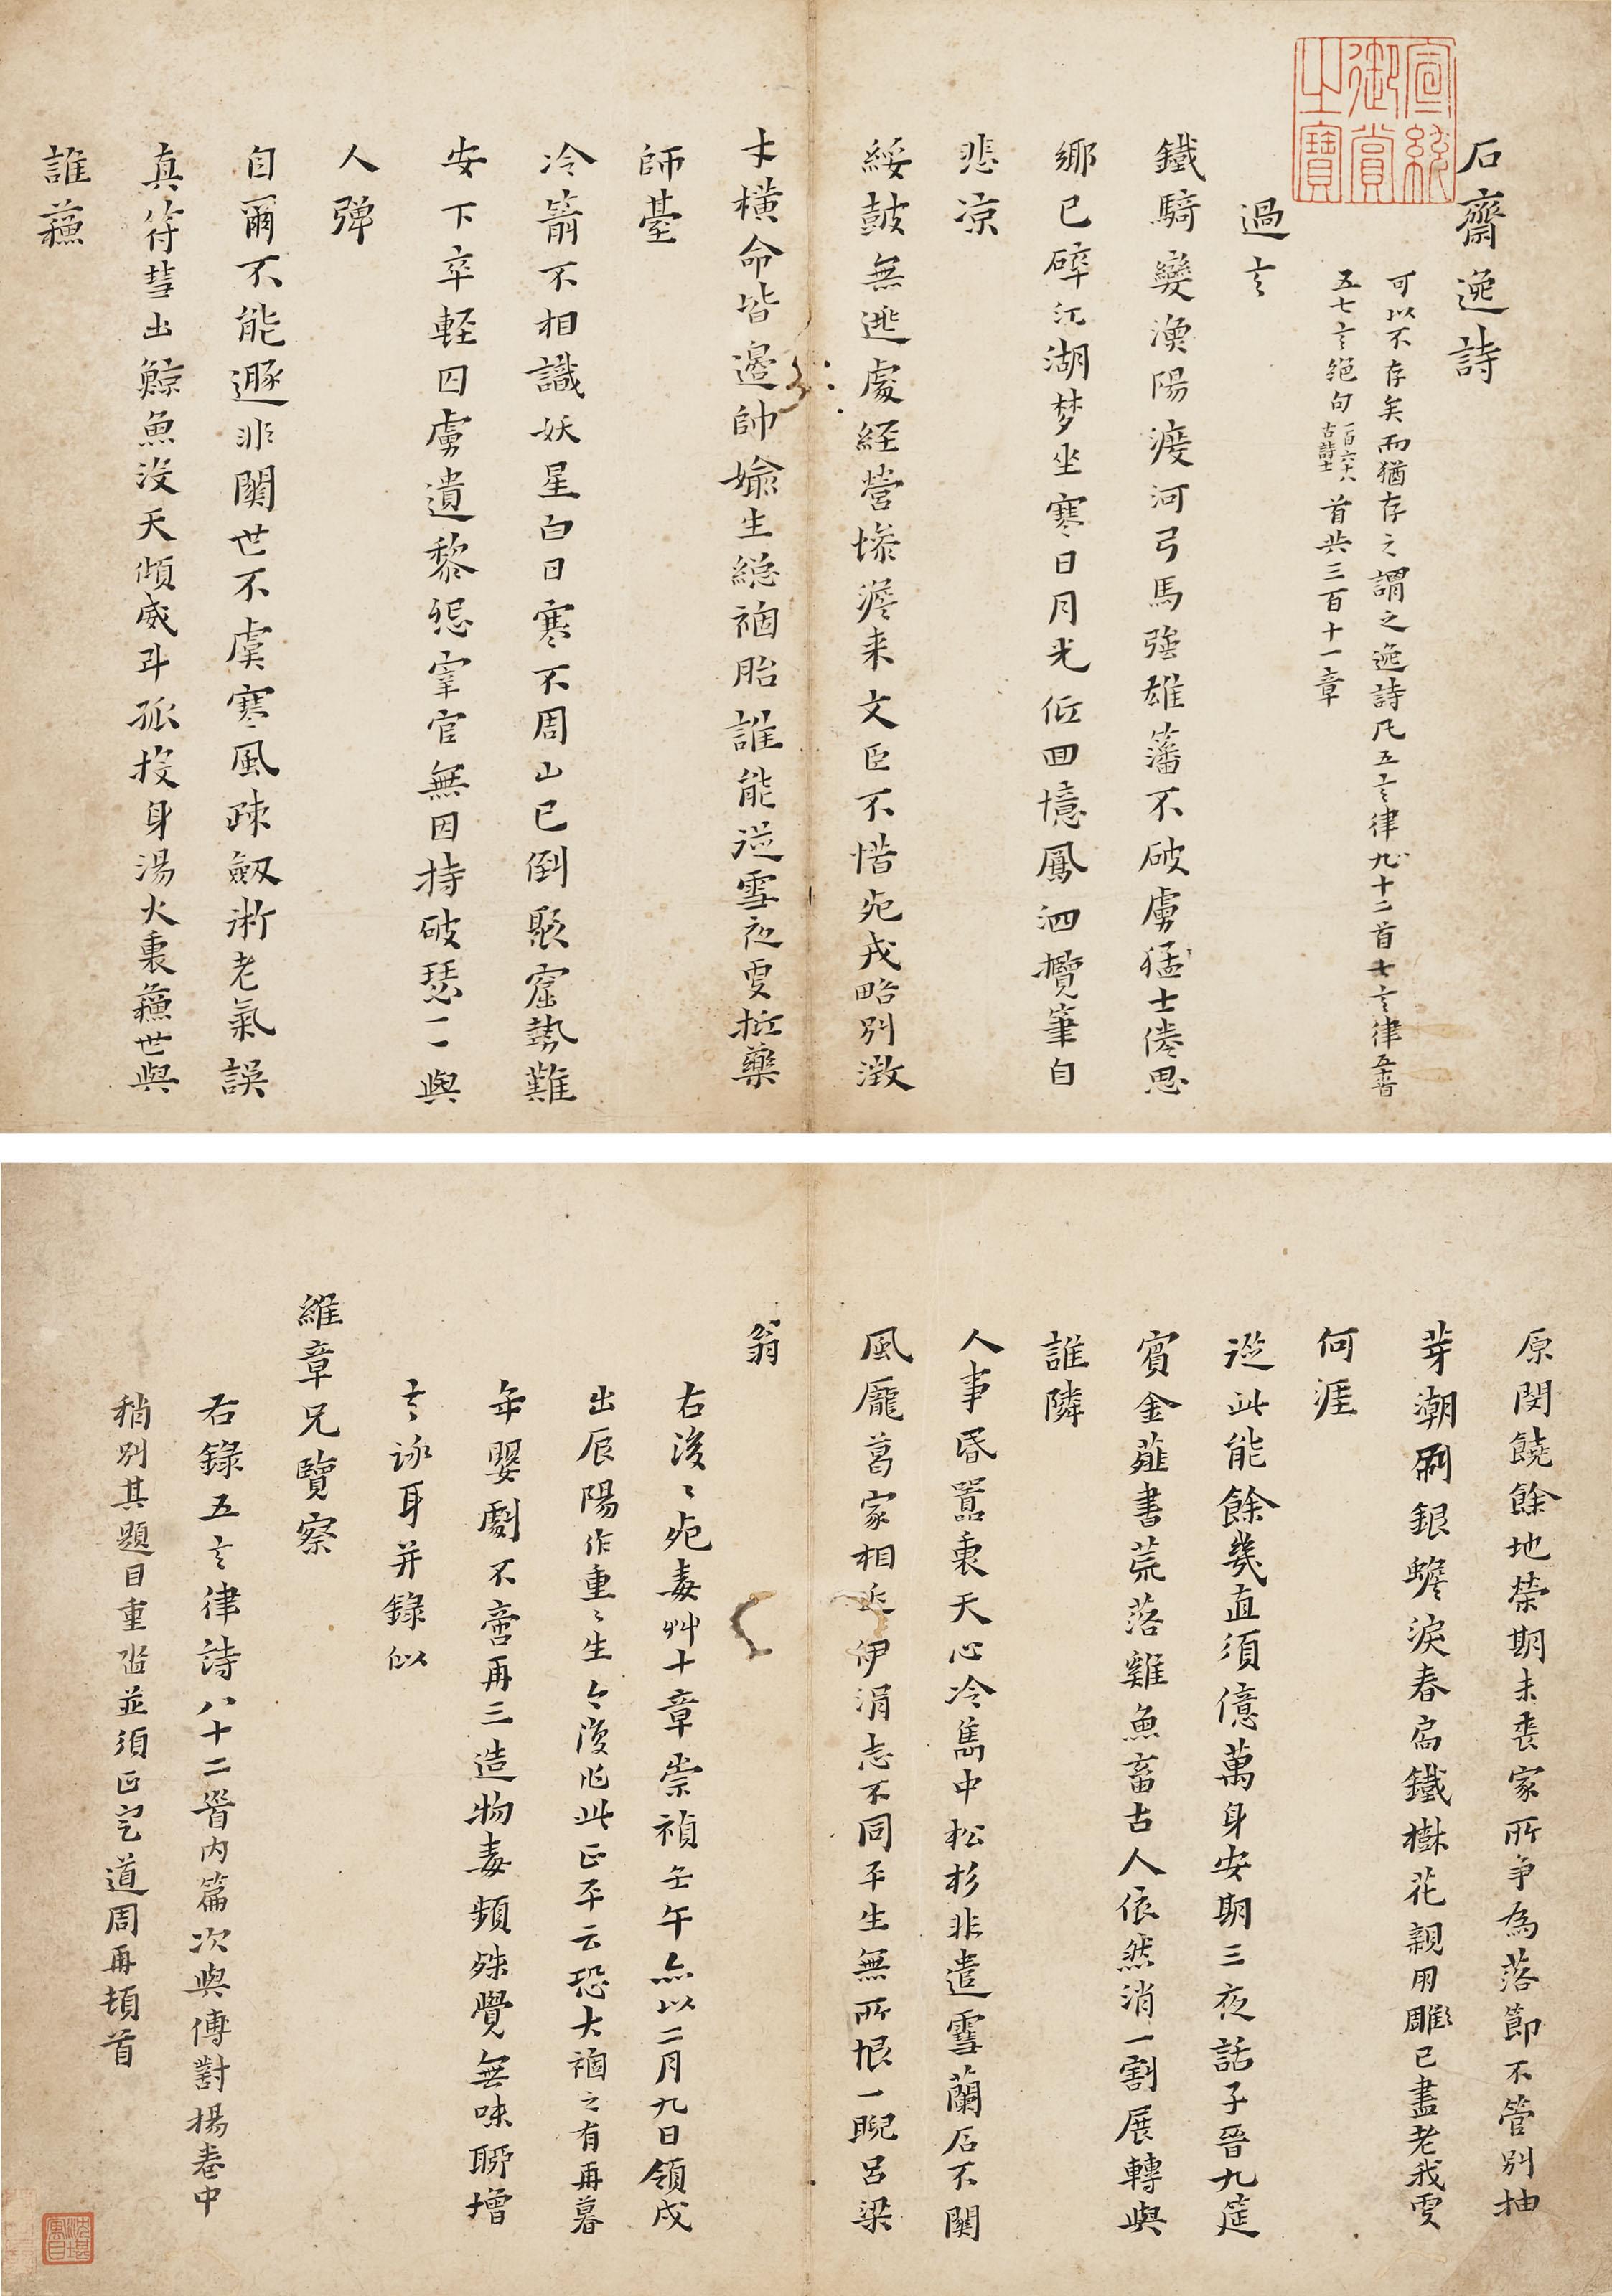 石齋逸詩
可以不存矣而猶存之謂之逸詩凡五言律九十二首七言律五十首
五七言絕句一百六十八古詩七首共三百十一章
過言
鐵騎變漁陽渡河弓馬強雄藩不破虜猛士倦思
鄉已碎江湖梦坐寒日月光低回憶鳳泗攬筆自
悲凉
綏鼓無逃處經營慘澹来文臣不惜死戎略別激
才橫命皆邊帥媮生總禍胎誰能從雪夜更拆藥
師臺
冷箭不相識妖星白日寒不周山已倒聚窟勢難
安下卒輕囚虜遺黎怨宰官無因持破瑟一與
人彈
自爾不能遯非關世不虞寒風踈劒術老氣誤
真符彗出鯨魚沒天傾威斗孤投身湯火裏蘓世與
誰蘓
原閔饒餘地榮期未喪家所爭為落節不管別抽
芽潮刷銀蟾淚春扃鐵樹花親朋雕已盡老我更
何涯
從此能餘幾直須億萬身安期三夜話子晉九筵
賓金薤書荒落雞魚畜古人依然消一割展轉與
誰隣
人事昏嚚裏天心冷雋中松杉非遣雪蘭石不關
風龐葛家相近伊涓志不同平生無所恨一睨呂梁
翁
右後〻死毒艸十章崇禎壬午亦以二月九日領戍
出辰陽作重〻生今復此正平云恐大禍之有再暮
年嬰劇不啻再三造物毒頻殊覺無味聊增
言詠耳并錄似
維章兄覽察
右錄五言律詩八十二首內篇次與傅對揚卷中
稍別其題目重沓並須正定道周再頓首
宣統御賞之寶